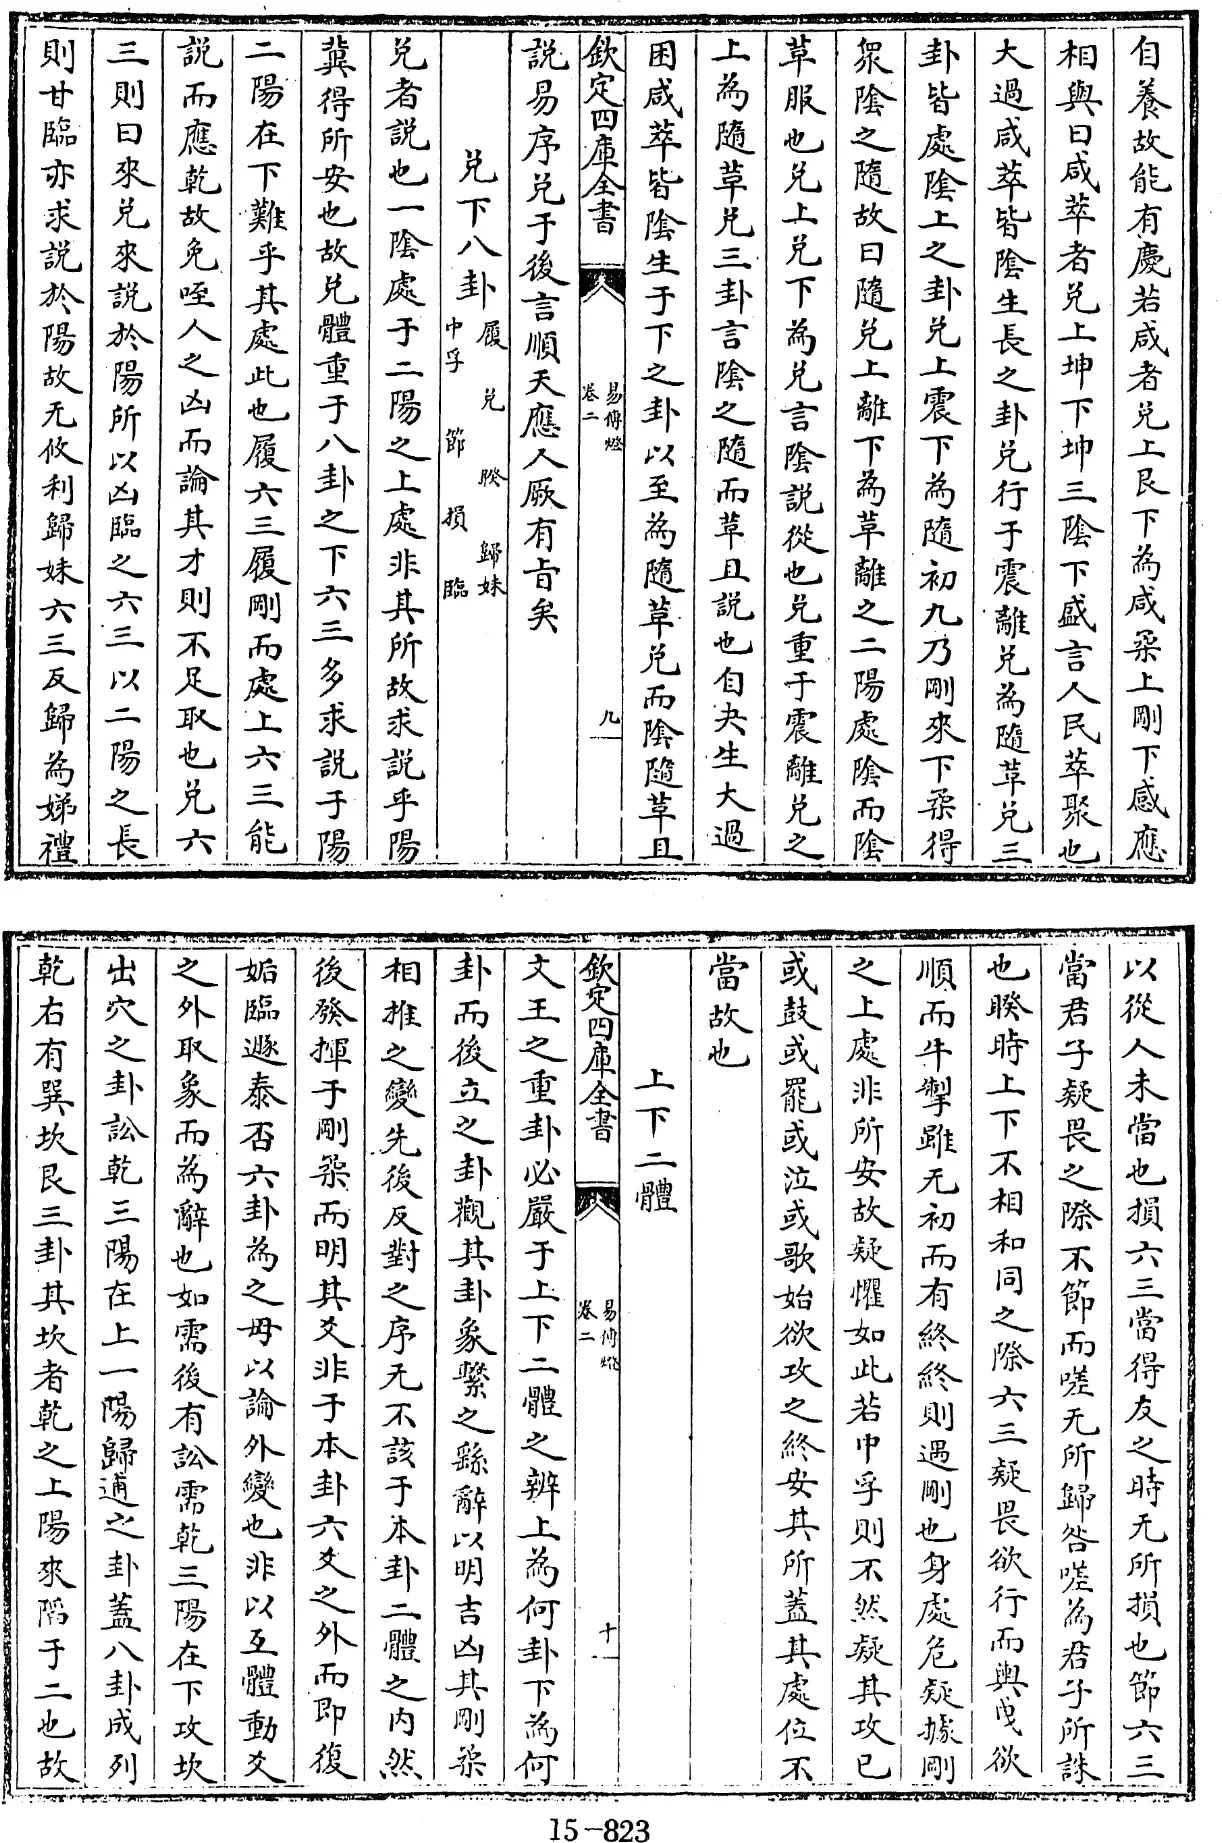 自養故能有慶若咸者兑上艮下為咸柔上剛下感應
相與曰咸萃者兑上坤下坤三陰下盛言人民萃聚也
大過咸萃皆陰生長之卦兑行于震離兑為隨革兑三
卦皆處陰上之卦兑上震下為隨初九乃剛來下柔得
衆陰之隨故曰隨兑上離下為革離之二陽處陰而陰
革服也兑上兑下為兑言陰説從也兑重于震離兑之
上為隨革兑三卦言陰之隨而革且説也自夬生大過
困咸萃皆陰生于下之卦以至為隨革兑而陰隨革且
欽定四庫全書
易傳燈
卷二
九
説易序兑于後言順天應人厥有旨矣
兑下八卦
履 兑 睽 歸妹
中孚 節 損 臨
兑者説也一陰處于二陽之上處非其所故求説乎陽
冀得所安也故兑體重于八卦之下六三多求説于陽
二陽在下難乎其處此也履六三履剛而處上六三能
説而應乾故免咥人之凶而論其才則不足取也兑六
三則曰來兑來説於陽所以凶臨之六三以二陽之長
則甘臨亦求説於陽故无攸利歸妹六三反歸為娣禮
以從人未當也損六三當得友之時无所損也節六三
當君子疑畏之際不節而嗟无所歸咎嗟為君子所誅
也睽時上下不相和同之際六三疑畏欲行而輿曵欲
順而牛掣雖无初而有終終則遇剛也身處危疑據剛
之上處非所安故疑懼如此若中孚則不然疑其攻已
或鼓或罷或泣或歌始欲攻之終安其所蓋其處位不
當故也
上下二體
欽定四庫全書
易傳燈
卷二
十
文王之重卦必嚴于上下二體之辨上為何卦下為何
卦而後立之卦觀其卦象繫之繇辭以明吉凶其剛柔
相推之變先後反對之序无不該于本卦二體之内然
後發揮于剛柔而明其爻非于本卦六爻之外而即復
姤臨遯泰否六卦為之毋以論外變也非以互體動爻
之外取象而為辭也如需後有訟需乾三陽在下攻坎
出穴之卦訟乾三陽在上一陽歸逋之卦蓋八卦成列
乾右有巽坎艮三卦其坎者乾之上陽來陷于二也故
15-823